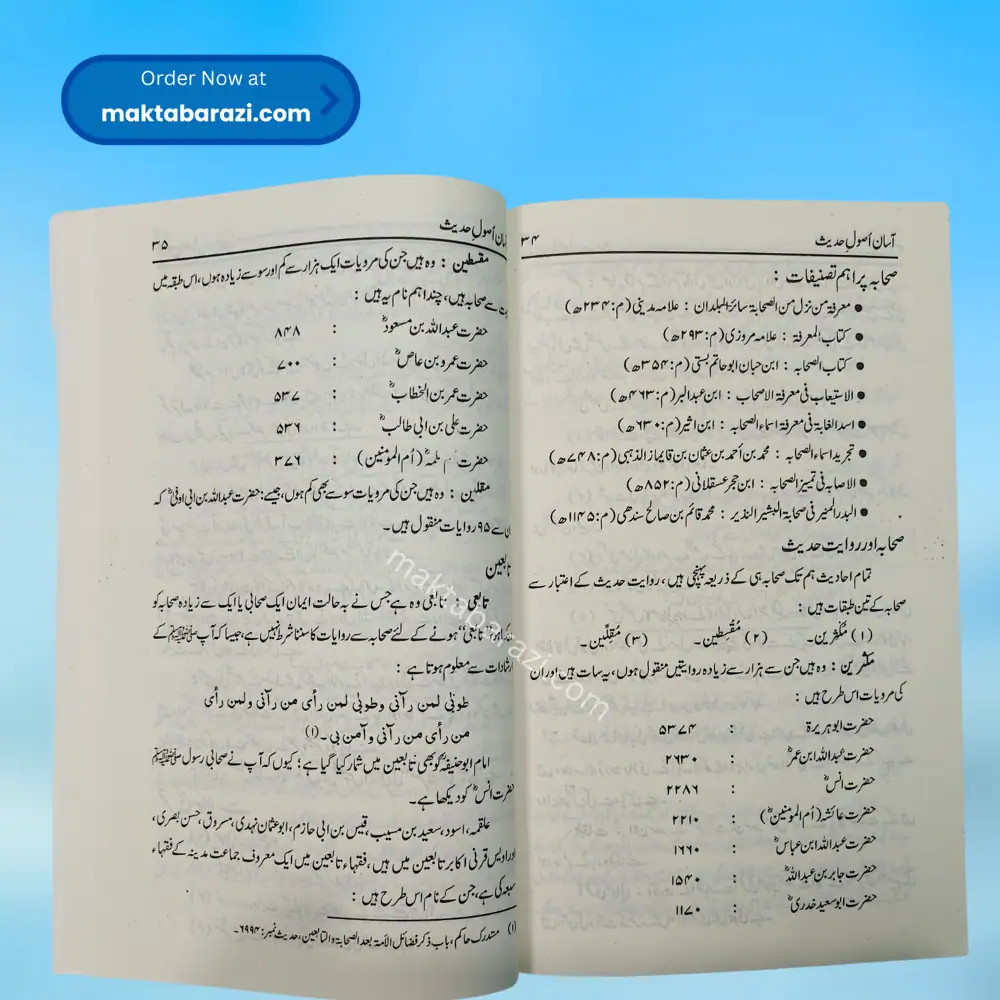 Order Now at
maktabarazi.com
آسان اُصولِ حدیث ۳۴
صحابہ پر اہم تصنیفات :
● معرفۃ من نزل من الصحابۃ سائر البلدان : علامہ مدینی (م:۲۳۴ھ)
● کتاب المعرفۃ : علامہ مروزی (م:۲۹۳ھ)
● کتاب الصحابہ : ابن حبان ابوحاتم بستی (م:۳۵۴ھ)
● الاستیعاب فی معرفۃ الاصحاب : ابن عبدالبر (م:۴۶۳ھ)
● اسد الغابۃ فی معرفۃ اسماء الصحابہ : ابن اثیر (م:۶۳۰ھ)
● تجرید اسماء الصحابہ : محمد بن أحمد بن عثمان بن قایماز الذہبی (م:۷۴۸ھ)
● الاصابہ فی تمییز الصحابہ : ابن حجر عسقلانی (م:۸۵۲ھ)
● البدر المنیر فی صحابۃ البشیر النذیر : محمد قائم بن صالح سندھی (م:۱۱۴۵ھ)
صحابہ اور روایت حدیث
تمام احادیث ہم تک صحابہ ہی کے ذریعہ پہنچی ہیں، روایت حدیث کے اعتبار سے
صحابہ کے تین طبقات ہیں :
(۱) مُکثِرین۔ (۲) مُقسِطین۔ (۳) مُقِلِّین۔
مکثرین : وہ ہیں جن سے ہزار سے زیادہ روایتیں منقول ہوں، یہ سات ہیں اور ان
کی مرویات اس طرح ہیں :
حضرت ابوہریرۃ : ۵۳۷۴
حضرت عبداللہ ابن عمرؓ : ۲۶۳۰
حضرت انسؓ : ۲۲۸۶
حضرت عائشہ (اُم المومنینؓ) : ۲۲۱۰
حضرت عبداللہ ابن عباسؓ : ۱۶۶۰
حضرت جابر بن عبداللہؓ : ۱۵۴۰
حضرت ابوسعید خدریؓ : ۱۱۷۰
اُصولِ حدیث ۳۵
مقسطین : وہ ہیں جن کی مرویات ایک ہزار سے کم اور سو سے زیادہ ہوں، اس طبقہ میں
سے صحابہ ہیں، چند اہم نام یہ ہیں :
حضرت عبداللہ بن مسعودؓ : ۸۴۸
حضرت عمرو بن عاصؓ : ۷۰۰
حضرت عمر بن الخطابؓ : ۵۳۷
حضرت علی بن ابی طالبؓ : ۵۳۶
حضرت سلمہؓ (اُم المومنین) : ۳۷۶
مقلین : وہ ہیں جن کی مرویات سو سے بھی کم ہوں، جیسے: حضرت عبداللہ بن ابی اوفیٰؓ کہ
ان سے ۹۵ روایات منقول ہیں۔
تابعین
تابعی وہ ہے جس نے بہ حالت ایمان ایک صحابی یا ایک سے زیادہ صحابہ کو
”تابعی“ ہونے کے لئے صحابہ سے روایات کا سننا شرط نہیں ہے، جیسا کہ آپ ﷺ کے
ارشادات سے معلوم ہوتا ہے :
طوبٰی لمن رآنی وطوبٰی لمن رأی من رآنی ولمن رأی
من رأی من رآنی وآمن بی۔(۱)
امام ابوحنیفہؒ کو بھی تابعین میں شمار کیا گیا ہے؛ کیوں کہ آپ نے صحابی رسول ﷺ
حضرت انسؓ کو دیکھا ہے۔
علقمہ، اسود، سعید بن مسیب، قیس بن ابی حازم، ابوعثمان نہدی، مسروق، حسن بصری،
اور اویس قرنی اکابر تابعین میں ہیں، فقہاء تابعین میں ایک معروف جماعت مدینہ کے فقہاء
سبعہ کی ہے، جن کے نام اس طرح ہیں :
(۱) مستدرک حاکم، باب ذکر فضائل الأمۃ بعد الصحابۃ والتابعین، حدیث نمبر: ۶۹۹۴۔
maktabarazi.com